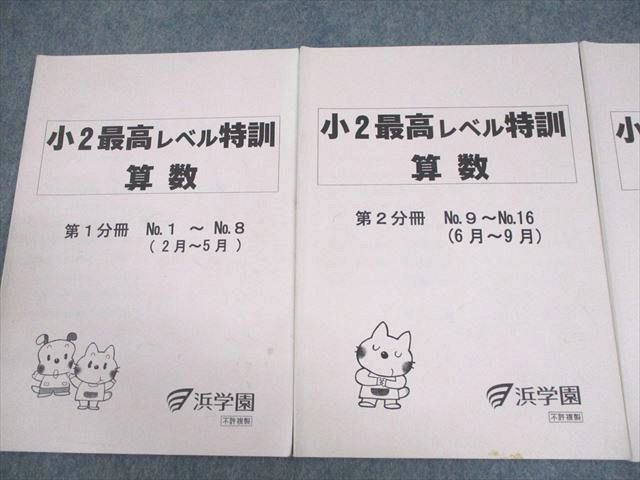 小2最高レベル特訓
算数
第1分冊 No.1 ～ No.8
(2月～5月)
浜学園
不許複製
小2最高レベル特訓
算数
第2分冊 No.9～No.16
(6月～9月)
浜学園
不許複製
小